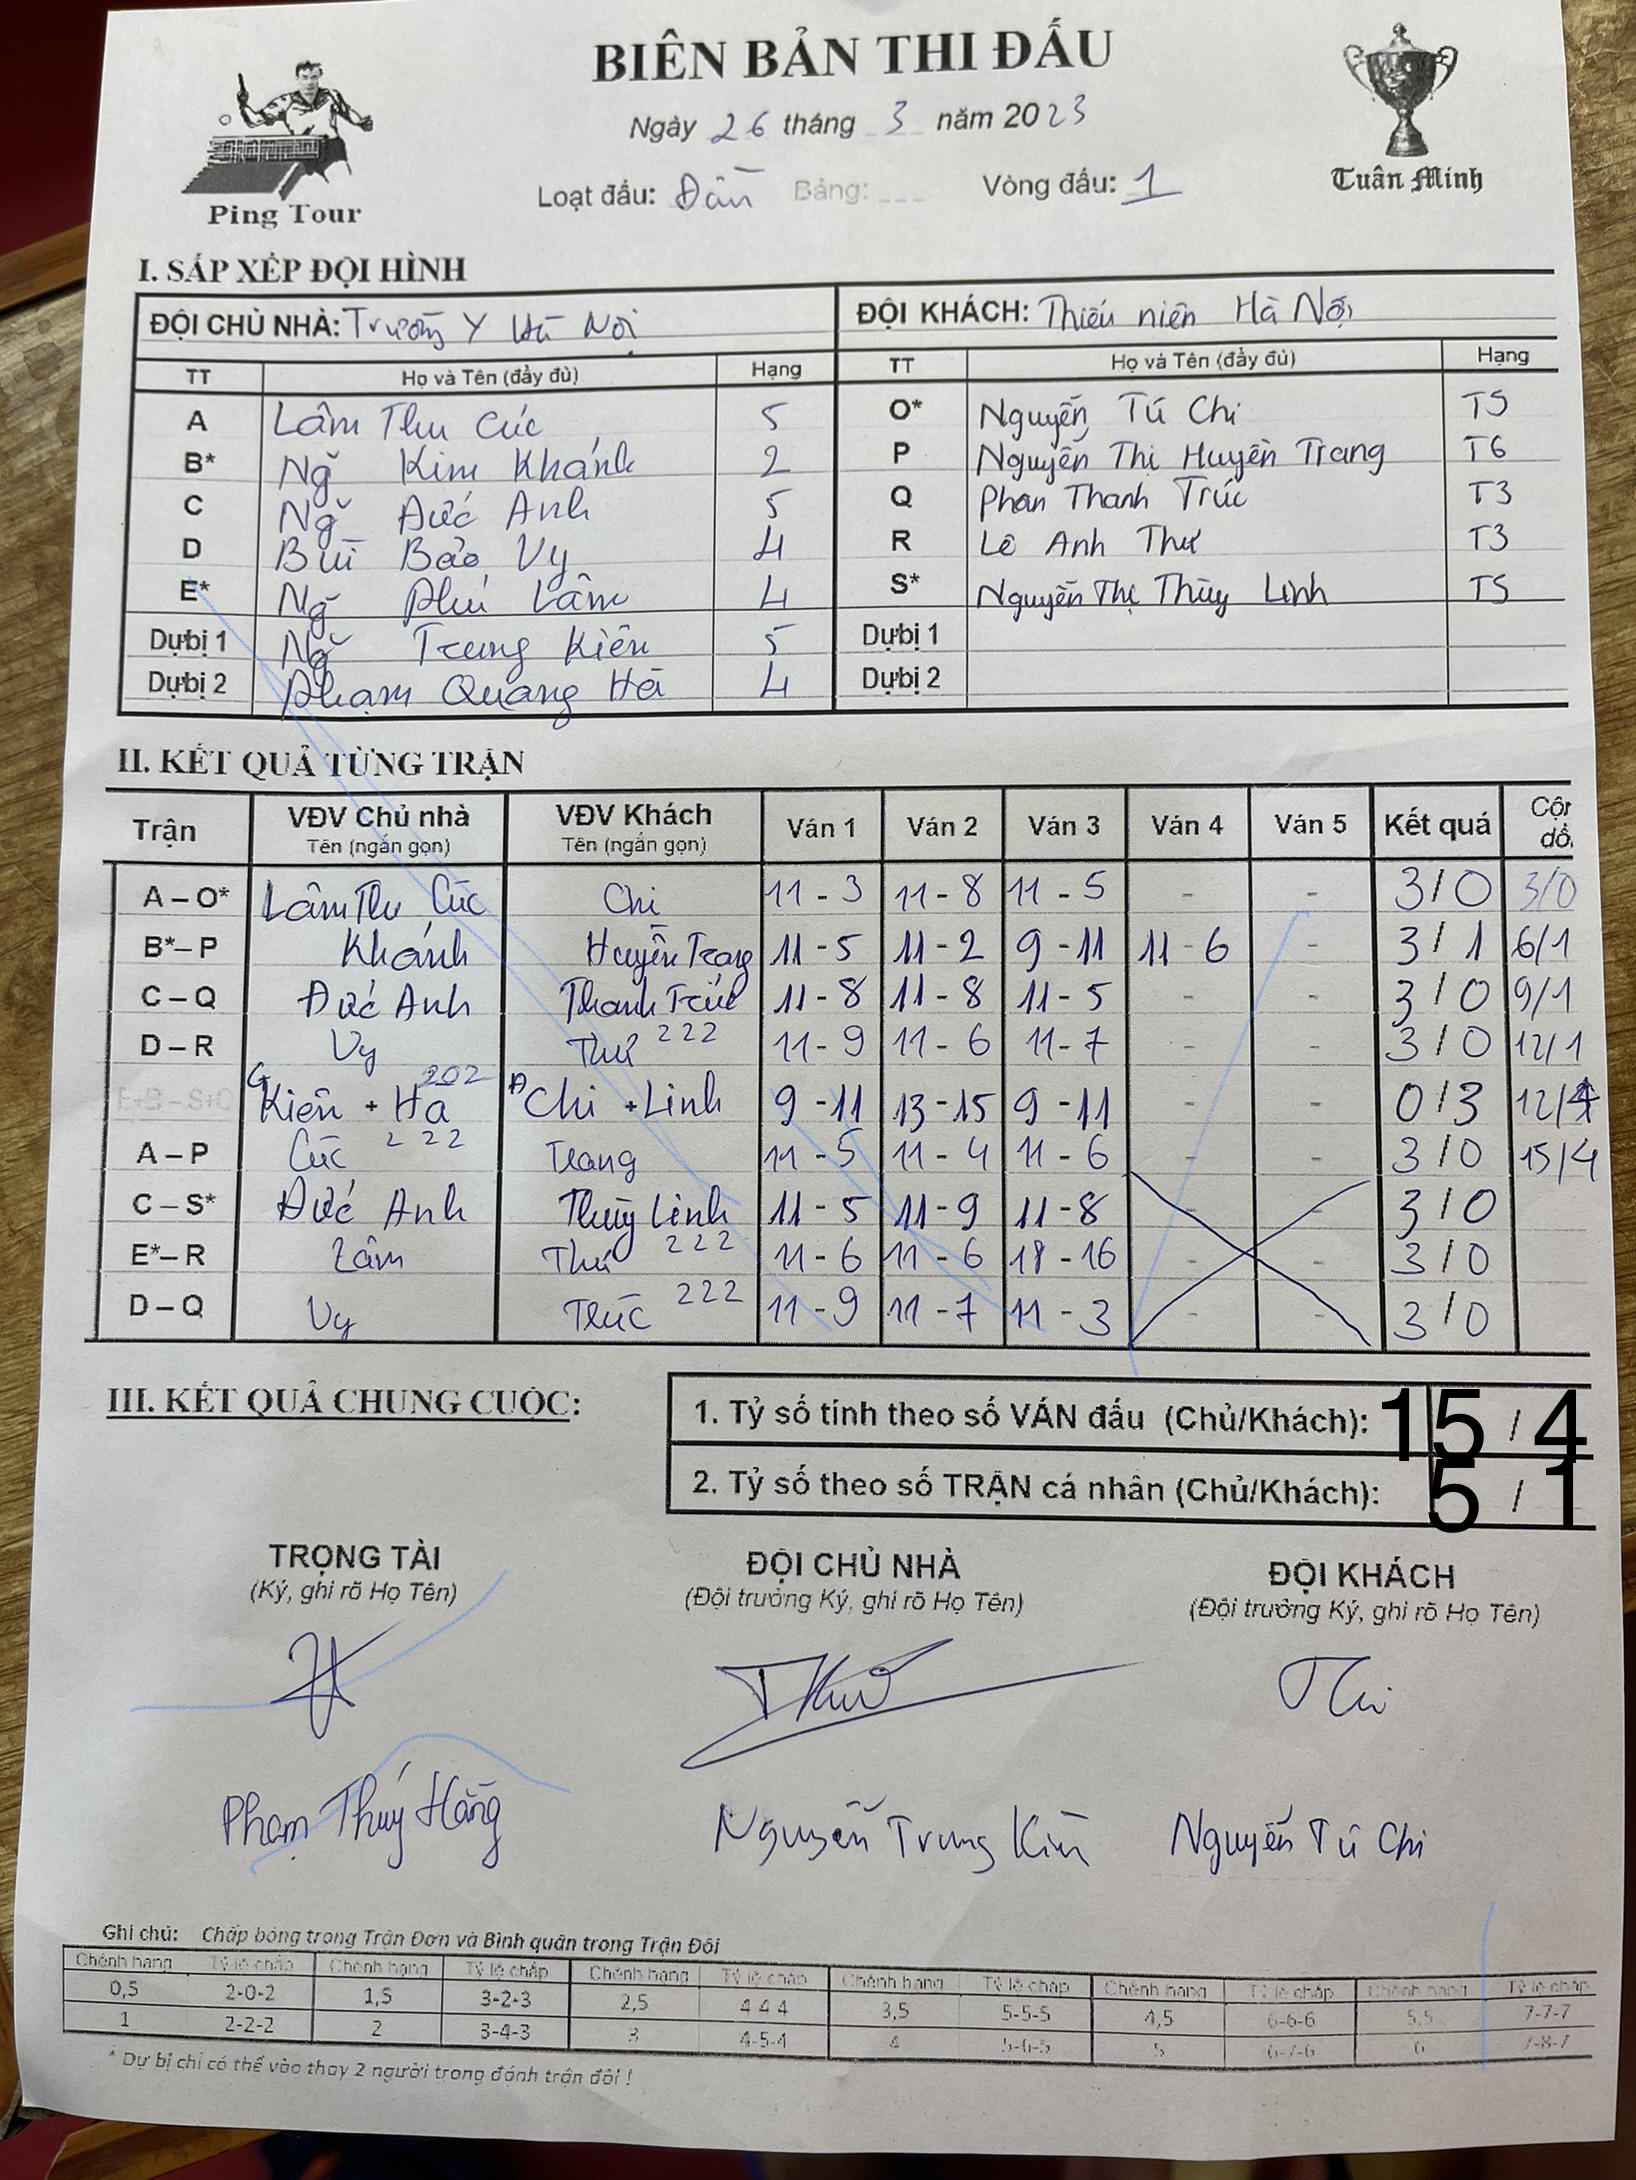 BIÊN BẢN THI ĐẤU
Ngày 26 tháng 3 năm 2023
Loạt đấu: Đầu Bảng: ___ Vòng đấu: 1
Ping Tour
Tuấn Minh
I. SẮP XẾP ĐỘI HÌNH
ĐỘI CHỦ NHÀ: Trường Y Hà Nội ĐỘI KHÁCH: Thiếu niên Hà Nội
TT Họ và Tên (đầy đủ) Hạng TT Họ và Tên (đầy đủ) Hạng
A Lâm Thu Cúc 5 O* Nguyễn Tú Chi T5
B* Ng~ Kim Khánh 2 P Nguyễn Thị Huyền Trang T6
C Ng~ Đức Anh 5 Q Phan Thanh Trúc T3
D Bùi Bảo Vy 4 R Lê Anh Thư T3
E* Ng~ Phú Lâm 4 S* Nguyễn Thị Thùy Linh T5
Dự bị 1 Ng~ Trung Kiên 5 Dự bị 1
Dự bị 2 Phạm Quang Hà 4 Dự bị 2
II. KẾT QUẢ TỪNG TRẬN
Trận VĐV Chủ nhà VĐV Khách Ván 1 Ván 2 Ván 3 Ván 4 Ván 5 Kết quả
Tên (ngắn gọn) Tên (ngắn gọn)
A – O* Lâm Thu Cúc Chi 11 - 3 11 - 8 11 - 5 - - 3/0 3/0
B* – P Khánh Huyền Trang 11 - 5 11 - 2 9 - 11 11 - 6 - 3/1 6/1
C – Q Đức Anh Thanh Trúc 11 - 8 11 - 8 11 - 5 - - 3/0 9/1
D – R Vy Thư 222 11 - 9 11 - 6 11 - 7 - - 3/0 12/1
E+B – S+O Kiên + Hà 202 Chi + Linh 9 - 11 13 - 15 9 - 11 - - 0/3 12/4
A – P Cúc 222 Trang 11 - 5 11 - 4 11 - 6 - - 3/0 15/4
C – S* Đức Anh Thùy Linh 11 - 5 11 - 9 11 - 8 - - 3/0
E* – R Lâm Thư 222 11 - 6 11 - 6 18 - 16 - - 3/0
D – Q Vy Trúc 222 11 - 9 11 - 7 11 - 3 - - 3/0
III. KẾT QUẢ CHUNG CUỘC:
1. Tỷ số tính theo số VÁN đấu (Chủ/Khách): 15 / 4
2. Tỷ số theo số TRẬN cá nhân (Chủ/Khách): 5 / 1
TRỌNG TÀI ĐỘI CHỦ NHÀ ĐỘI KHÁCH
(Ký, ghi rõ Họ Tên) (Đội trưởng Ký, ghi rõ Họ Tên) (Đội trưởng Ký, ghi rõ Họ Tên)
Phạm Thúy Hằng Nguyễn Trung Kiên Nguyễn Tú Chi
Ghi chú: Chấp bóng trong Trận Đơn và Bình quân trong Trận Đôi
Chênh hạng Tỷ lệ chấp Chênh hạng Tỷ lệ chấp Chênh hạng Tỷ lệ chấp Chênh hạng Tỷ lệ chấp Chênh hạng Tỷ lệ chấp Chênh hạng Tỷ lệ chấp
0,5 2-0-2 1,5 3-2-3 2,5 4-4-4 3,5 5-5-5 4,5 6-6-6 5,5 7-7-7
1 2-2-2 2 3-4-3 3 4-5-4 4 5-6-5 5 6-7-6 6 7-8-7
* Dự bị chỉ có thể vào thay 2 người trong đánh trận đôi !